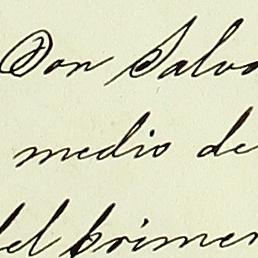 Don Salvo
medio de
del primer